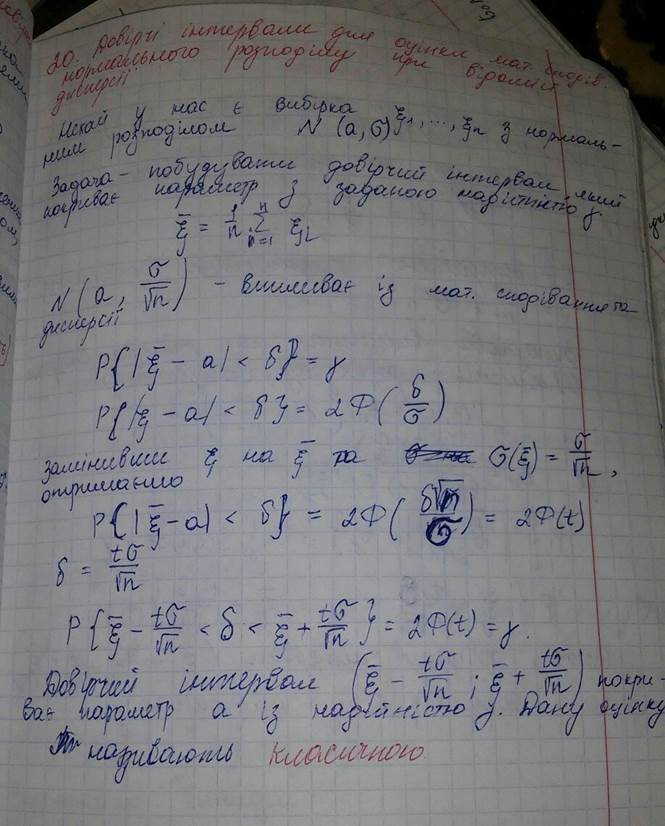 20. Довірчі інтервали для оцінки мат. сподів.
нормального розподілу при відомій
дисперсії
Нехай у нас є вибірка ξ₁, ..., ξₙ з нормаль-
ним розподілом N (a, σ)
Задача - побудувати довірчий інтервал, який
покриває параметр з заданою надійністю γ
ξ̄ = 1/n ∑
N(a, σ/√n) - випливає із мат. сподівання та
дисперсії
P{|ξ̄ - a| < δ} = γ
P{|ξ - a| < δ} = 2Φ(δ/σ)
Замінивши ξ на ξ̄ та σ(ξ̄) = σ/√n,
отримаємо
P{|ξ̄ - a| < δ} = 2Φ(δ√n/σ) = 2Φ(t)
δ = tσ/√n
P{ξ̄ - tσ/√n < δ < ξ̄ + tσ/√n} = 2Φ(t) = γ.
Довірчий інтервал (ξ̄ - tσ/√n ; ξ̄ + tσ/√n) покри-
ває параметр a із надійністю γ. Дану оцінку
називають класичного